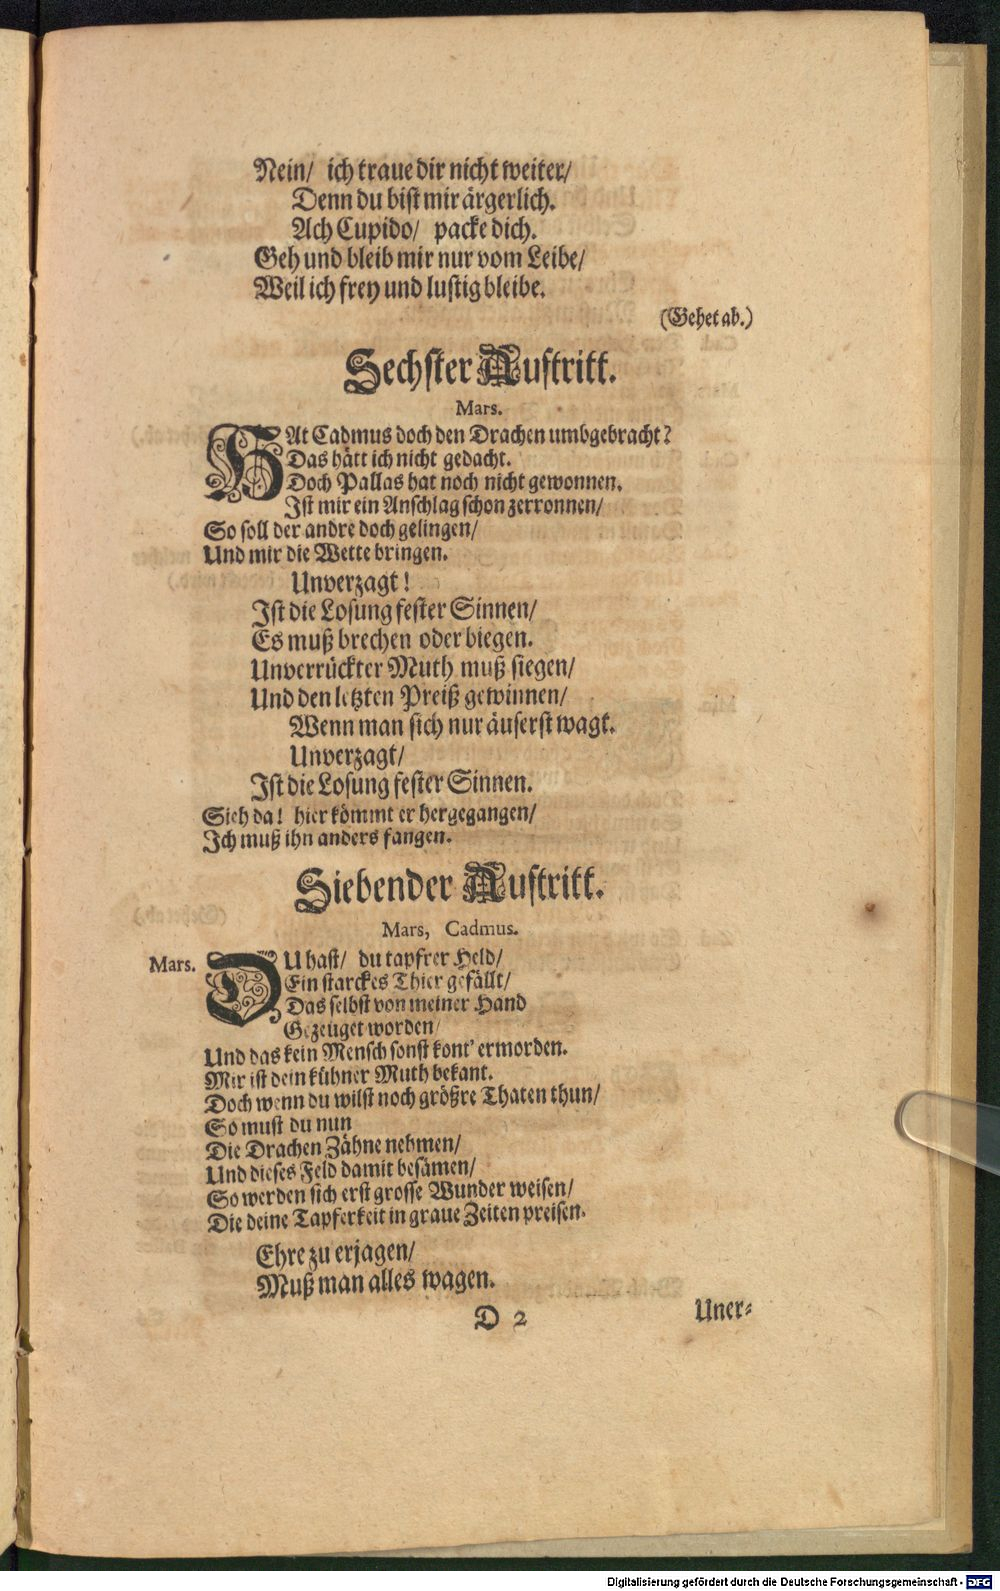 Nein/ ich traue dir nicht weiter/
Denn du bist mir ärgerlich.
Ach Cupido/ packe dich.
Geh und bleib mir nur vom Leibe/
Weil ich frey und lustig bleibe.
(Gehet ab.)
Sechster Auftritt.
Mars.
HAt Cadmus doch den Drachen umbgebracht?
Das hätt ich nicht gedacht.
Doch Pallas hat noch nicht gewonnen.
Ist mir ein Anschlag schon zerronnen/
So soll der andre doch gelingen/
Und mir die Wette bringen.
Unverzagt!
Ist die Losung fester Sinnen/
Es muß brechen oder biegen.
Unverrückter Muth muß siegen/
Und den letzten Preiß gewinnen/
Wenn man sich nur äuserst wagt.
Unverzagt/
Ist die Losung fester Sinnen.
Sieh da! hier kömmt er hergegangen/
Ich muß ihn anders fangen.
Siebender Auftritt.
Mars, Cadmus.
Mars. DU hast/ du tapfrer Held/
Ein starckes Thier gefällt/
Das selbst von meiner Hand
Gezeuget worden/
Und das kein Mensch sonst kont' ermorden.
Mir ist dein kühner Muth bekant.
Doch wenn du wilst noch größre Thaten thun/
So must du nun
Die Drachen Zähne nehmen/
Und dieses Feld damit besämen/
So werden sich erst grosse Wunder weisen/
Die deine Tapferkeit in graue Zeiten preisen.
Ehre zu erjagen/
Muß man alles wagen.
D 2
Uner-
Digitalisierung gefördert durch die Deutsche Forschungsgemeinschaft - DFG